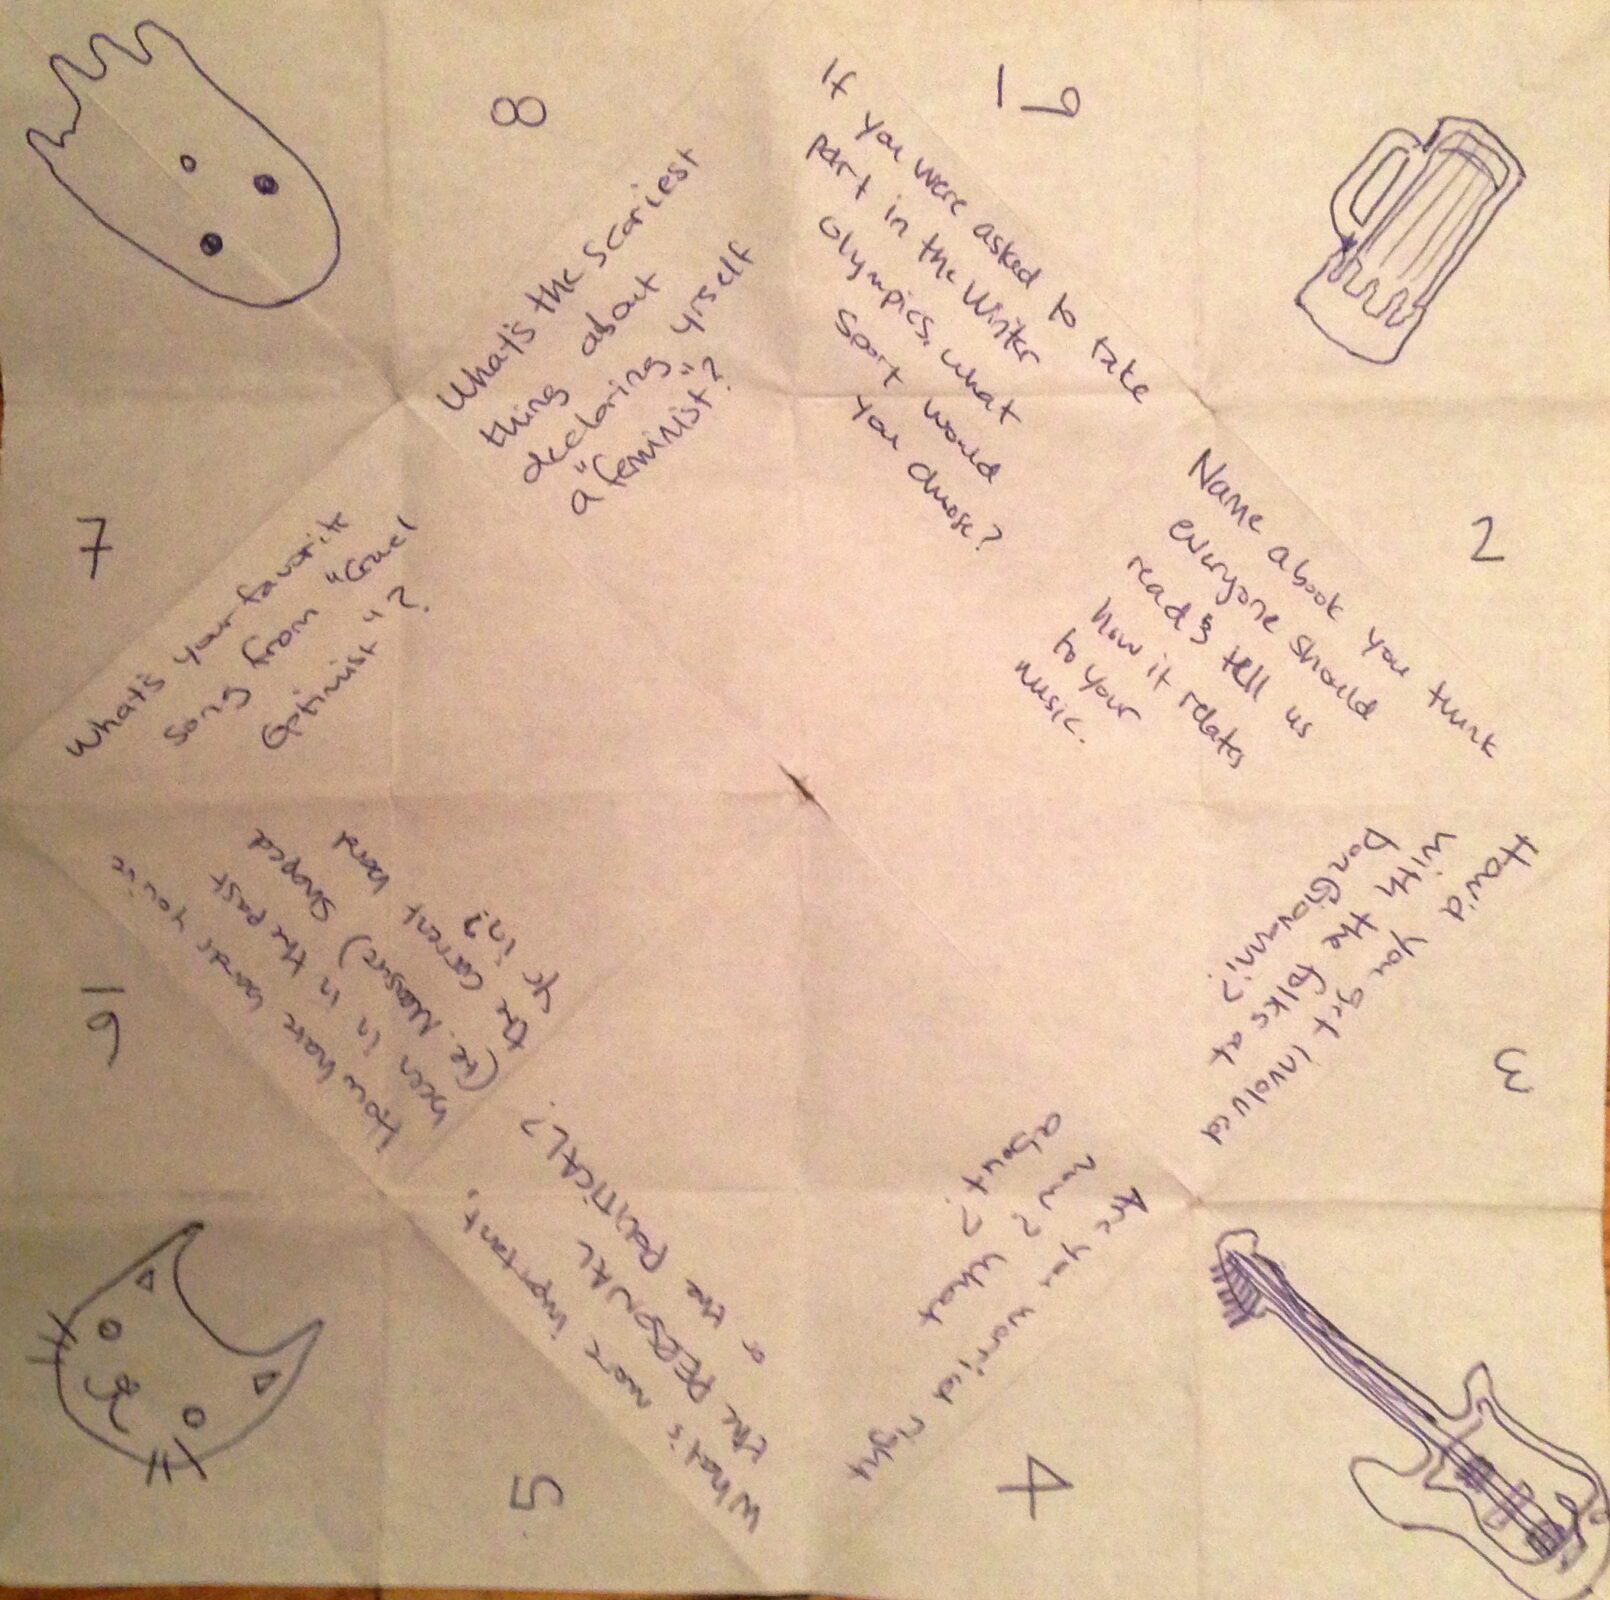 1
If you were asked to take
part in the Winter
Olympics, what
sport would
you choose?
2
Name a book you think
everyone should
read & tell us
how it relates
to your
music.
3
How'd you get involved
with the folks at
Don Giovanni?
4
Are you worried right
now? What
about?
5
What's more important,
the PERSONAL
or the POLITICAL?
6
How have bands you've
been in in the past
(re. Measure) shaped
the current band
yr in?
7
What's your favorite
song from "Cruel
Optimist"?
8
What's the scariest
thing about
declaring yrself
a "feminist"?